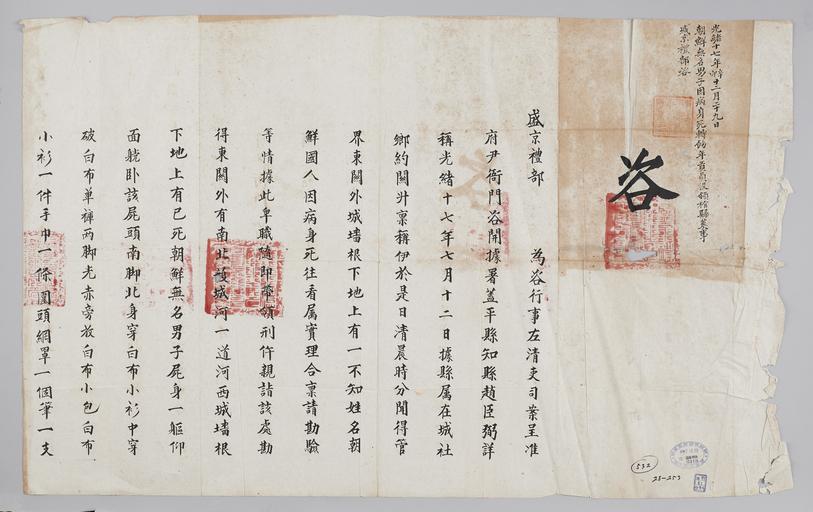 光緒十七年辛卯十二月二十九日
朝鮮無名男子因病身死轉飭年貢員役領棺歸葬事
盛京禮部咨
咨
盛京禮部　　為咨行事左清吏司案呈准
府尹衙門咨開據署蓋平縣知縣趙臣弼詳
稱光緒十七年七月十二日據縣属在城社
鄉約關升稟稱伊於是日清晨時分聞得管
界東關外城墻根下地上有一不知姓名朝
鮮國人因病身死往看属實理合稟請勘驗
等情據此卑職隨即帶領刑仵親詣該處勘
得東關外有南北護城河一道河西城墻根
下地上有已死朝鮮無名男子屍身一軀仰
面躺卧該屍頭南脚北身穿白布小衫中穿
破白布單褲兩脚光赤旁放白布小包白布
小衫一件手巾一條圍頭網罩一個筆一支
532
28-253